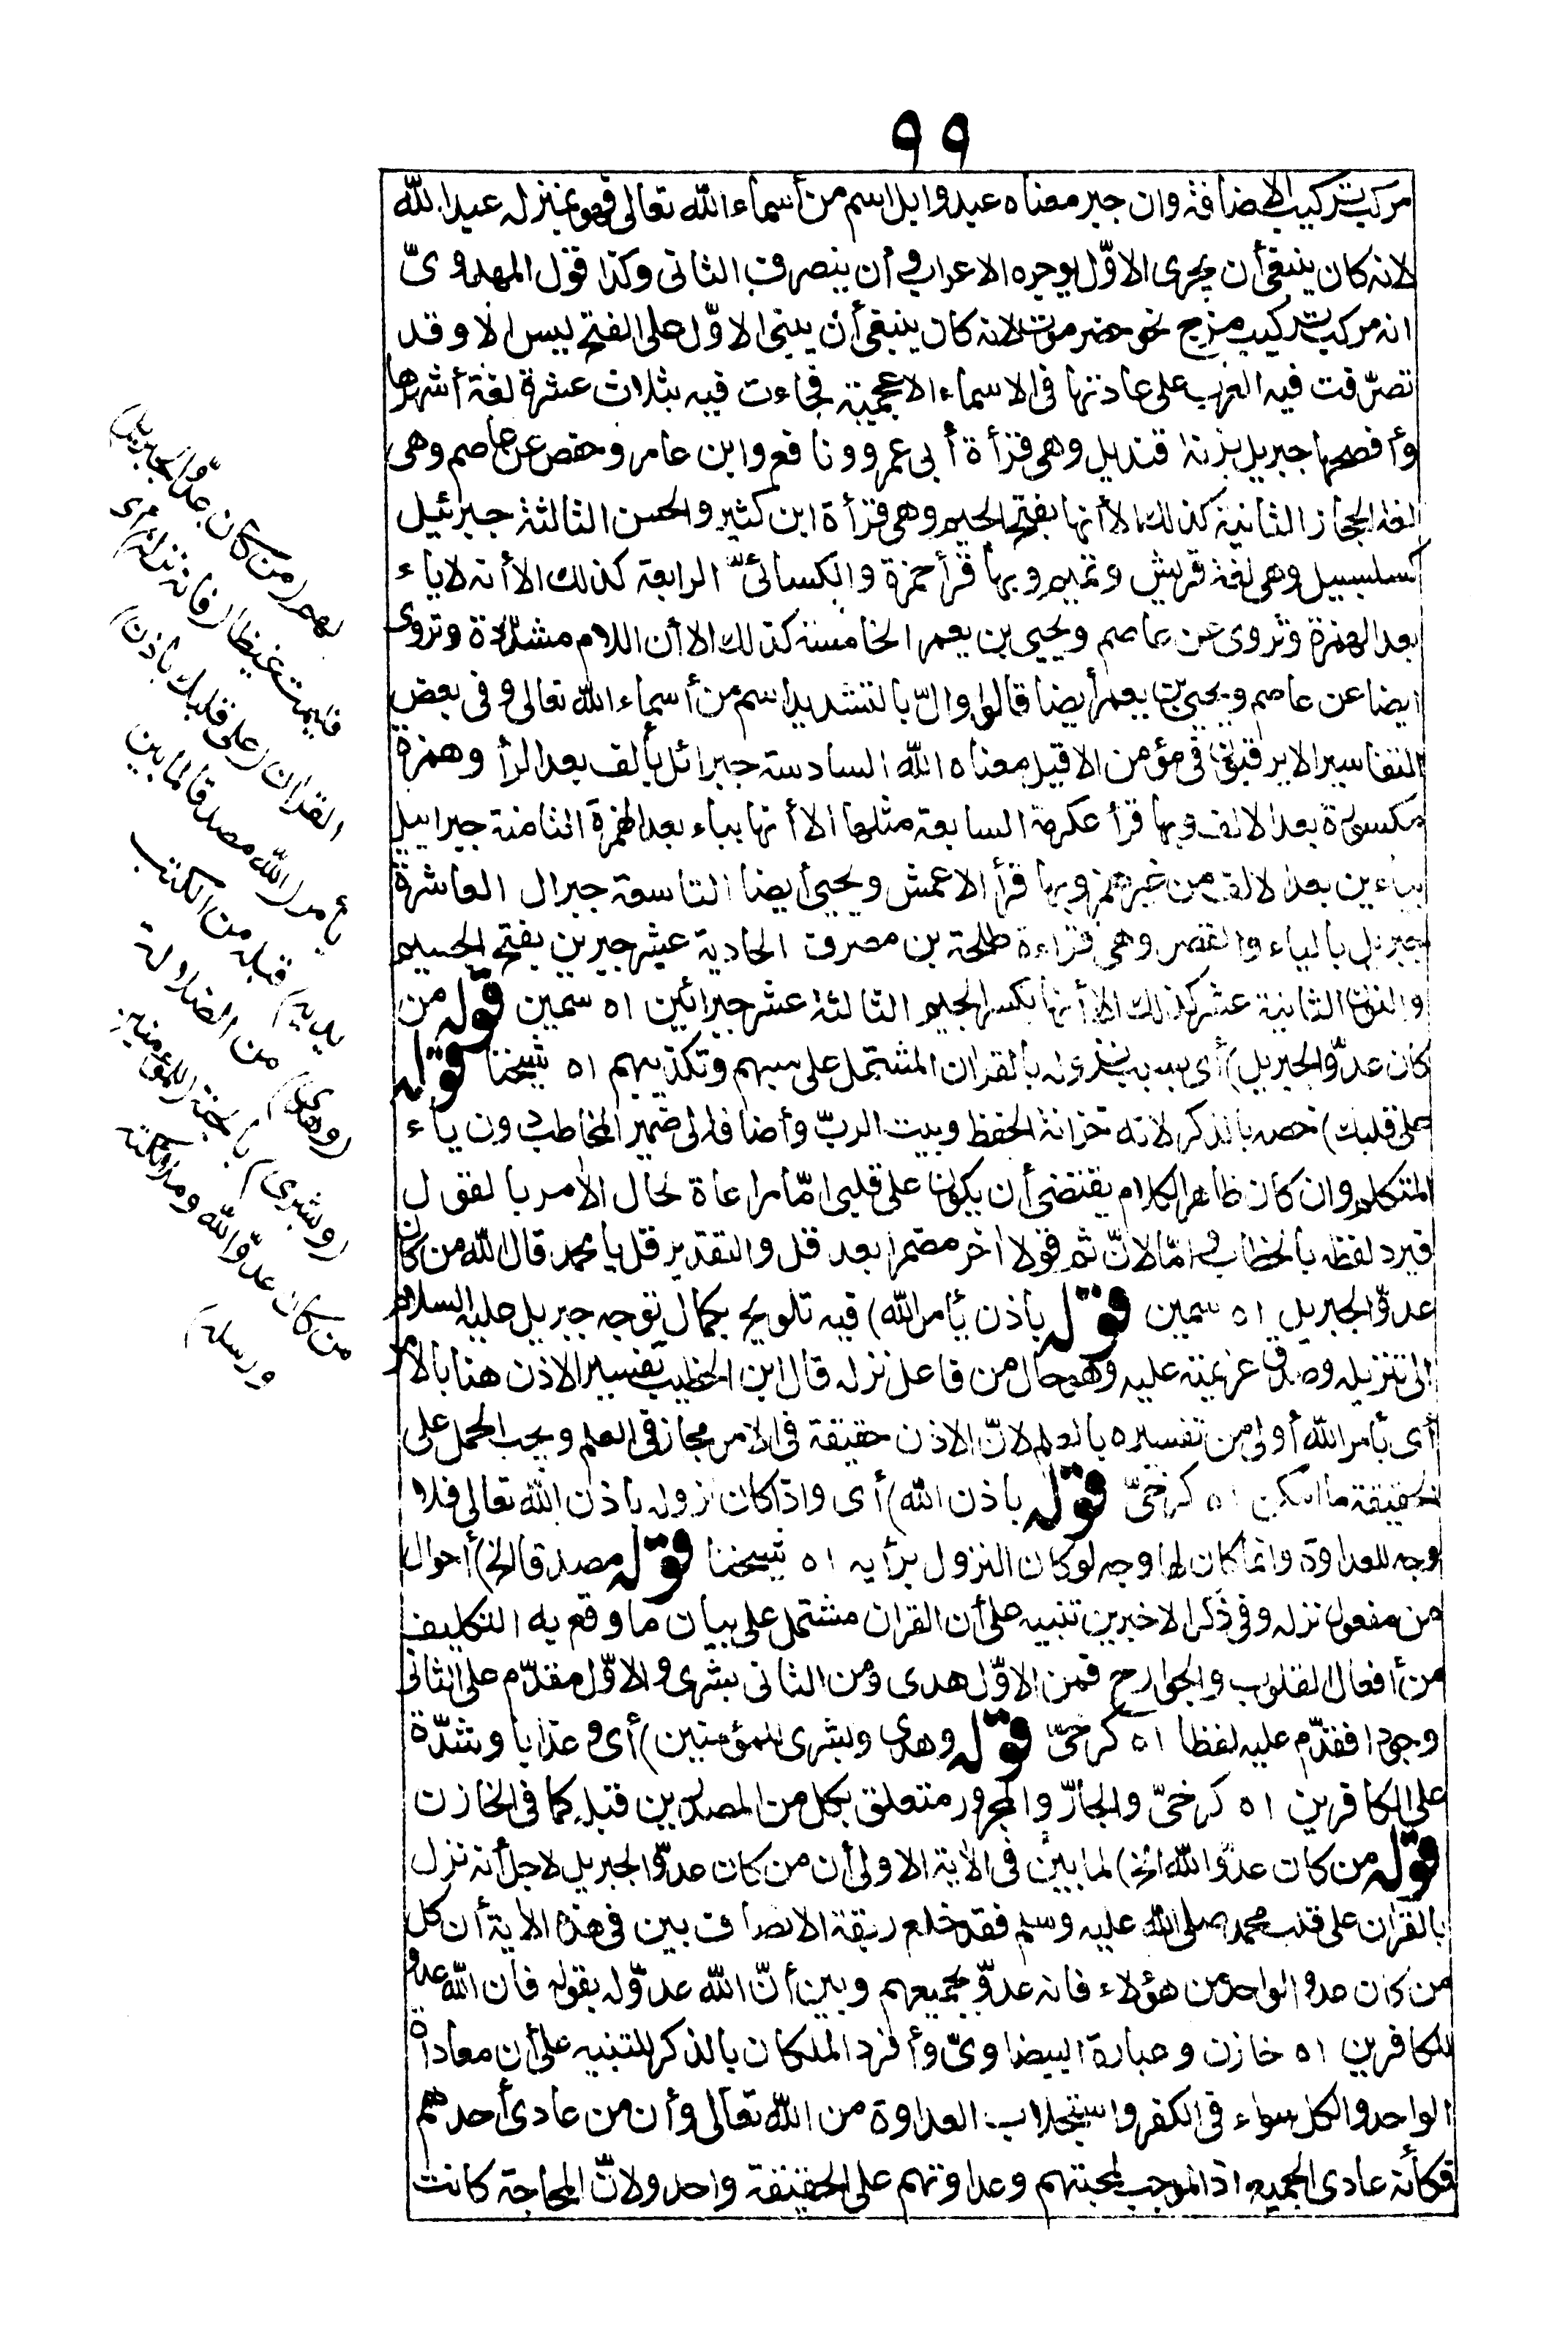 ٩٩
مركب تركيب الاضافة وان جبر معناه عبد وايل اسم من أسماء الله تعالى فهو بمنزلة عبد الله
لانه كان ينبغى أن يجرى الاوّل بوجوه الاعراب وأن ينصرف الثانى وكذا قول المهدوىّ
انه مركب تركيب مزج نحو حضرموت لانه كان ينبغى أن يبنى الاوّل على الفتح ليس الا وقد
تصرّفت فيه العرب على عادتها فى الاسماء الاعجمية فجاءت فيه بثلاث عشرة لغة أشهرها
وأفصحها جبريل بزنة قنديل وهى قرأة أبى عمرو ونافع وابن عامر وحفص عن عاصم وهى
لغة الحجاز الثانية كذلك الا أنها بفتح الجيم وهى قرأة ابن كثير والحسن الثالثة جبرئيل
كسلسبيل وهى لغة قريش وتميم وبها قرأ حمزة والكسائىّ الرابعة كذلك الا أنه لا ياء
بعد الهمزة وتروى عن عاصم ويحيى بن يعمر الخامسة كذلك الا أن اللام مشدّدة وتروى
ايضا عن عاصم ويحيى بن يعمر أيضا قالوا والّ بالتشديد اسم من أسماء الله تعالى وفى بعض
التفاسير لا يرقبون فى مؤمن الا قيل معناه الله السادسة جبرائل بألف بعد الرأ وهمزة
مكسورة بعد الالف وبها قرأ عكرمة السابعة مثلها الا أنها بياء بعد الهمزة الثامنة جبراييل
بياءين بعد الالف من غير همز وبها قرأ الاعمش ويحيى أيضا التاسعة جبرال العاشرة
جبريل بالياء والقصر وهى قراءة طلحة بن مصرف الحادية عشر جبرين بفتح الجيم
والنون الثانية عشر كذلك الا أنها بكسر الجيم الثالثة عشر جبرائين اه سمين قوله من
كان عدوّا لجبريل) أى بسبب نزوله بالقران المشتمل على سبهم وتكذيبهم اه شيخنا قوله
على قلبك) خصه بالذكر لانه خزانة الحفظ وبيت الربّ وأضافه الى ضمير المخاطب دون ياء
المتكلم وان كان ظاهر الكلام يقتضى أن يكون على قلبى امّا مراعاة لحال الأمر بالقول
فيرد لفظه بالخطاب وامّا لانّ ثم قولا اخر مضمرا بعد قل والتقدير قل يا محمد قال الله من كان
عدوّا لجبريل اه سمين قوله باذن بأمر الله) فيه تلويح بكمال توجه جبريل عليه السلام
الى تنزيله وصدق عزيمته عليه وهو حال من فاعل نزله قال ابن الخطيب تفسير الاذن هنا بالامر
أى بأمر الله أولى من تفسيره بالعلم لانّ الاذن حقيقة فى الامر مجاز فى العلم ويجب الحمل على
الحقيقة ما امكن اه كرخىّ قوله باذن الله) أى واذا كان نزوله باذن الله تعالى فلا
وجه للعداوة وانما كان لها وجه لو كان النزول برأيه اه شيخنا قوله مصدقا الخ) أحوال
من مفعول نزله وفى ذكر الاخيرين تنبيه على أن القران مشتمل على بيان ما وقع به التكليف
من أفعال القلوب والجوارح فمن الاوّل هدى ومن الثانى بشرى والاوّل مقدّم على الثانى
وجودا فقدّم عليه لفظا اه كرخىّ قوله وهدى وبشرى للمؤمنين) أى وعذابا وشدّة
على الكافرين اه كرخىّ والجارّ والمجرور متعلق بكل من المصدرين قبله كما فى الخازن
قوله من كان عدوّا لله الخ) لما بين فى الأية الاولى أن من كان عدوّا لجبريل لاجل أنه نزل
بالقران على قلب محمد صلى الله عليه وسلم فقد خلع ربقة الانصاف بين فى هذه الأية أن كل
من كان عدوا لواحد من هؤلاء فانه عدوّ لجميعهم وبين أنّ الله عدوّ له بقوله فان الله عدوّ
للكافرين اه خازن وعبارة البيضاوىّ وأفرد الملكان بالذكر للتنبيه على أن معاداة
الواحد والكل سواء فى الكفر واستجلاب العداوة من الله تعالى وأن من عادى أحدهم
فكأنه عادى الجميع اذ الموجب لمحبتهم وعداوتهم على الحقيقة واحد ولانّ المحاجة كانت
لهم (من كان عدوّا لجبريل)
فليمت غيظا (فانه نزله) أى
القران (على قلبك باذن)
بأمر (الله مصدقا لما بين
يديه) قبله من الكتب
(وهدى) من الضلالة
(وبشرى) بالجنة (للمؤمنين
من كان عدوّا لله وملائكته
ورسله)